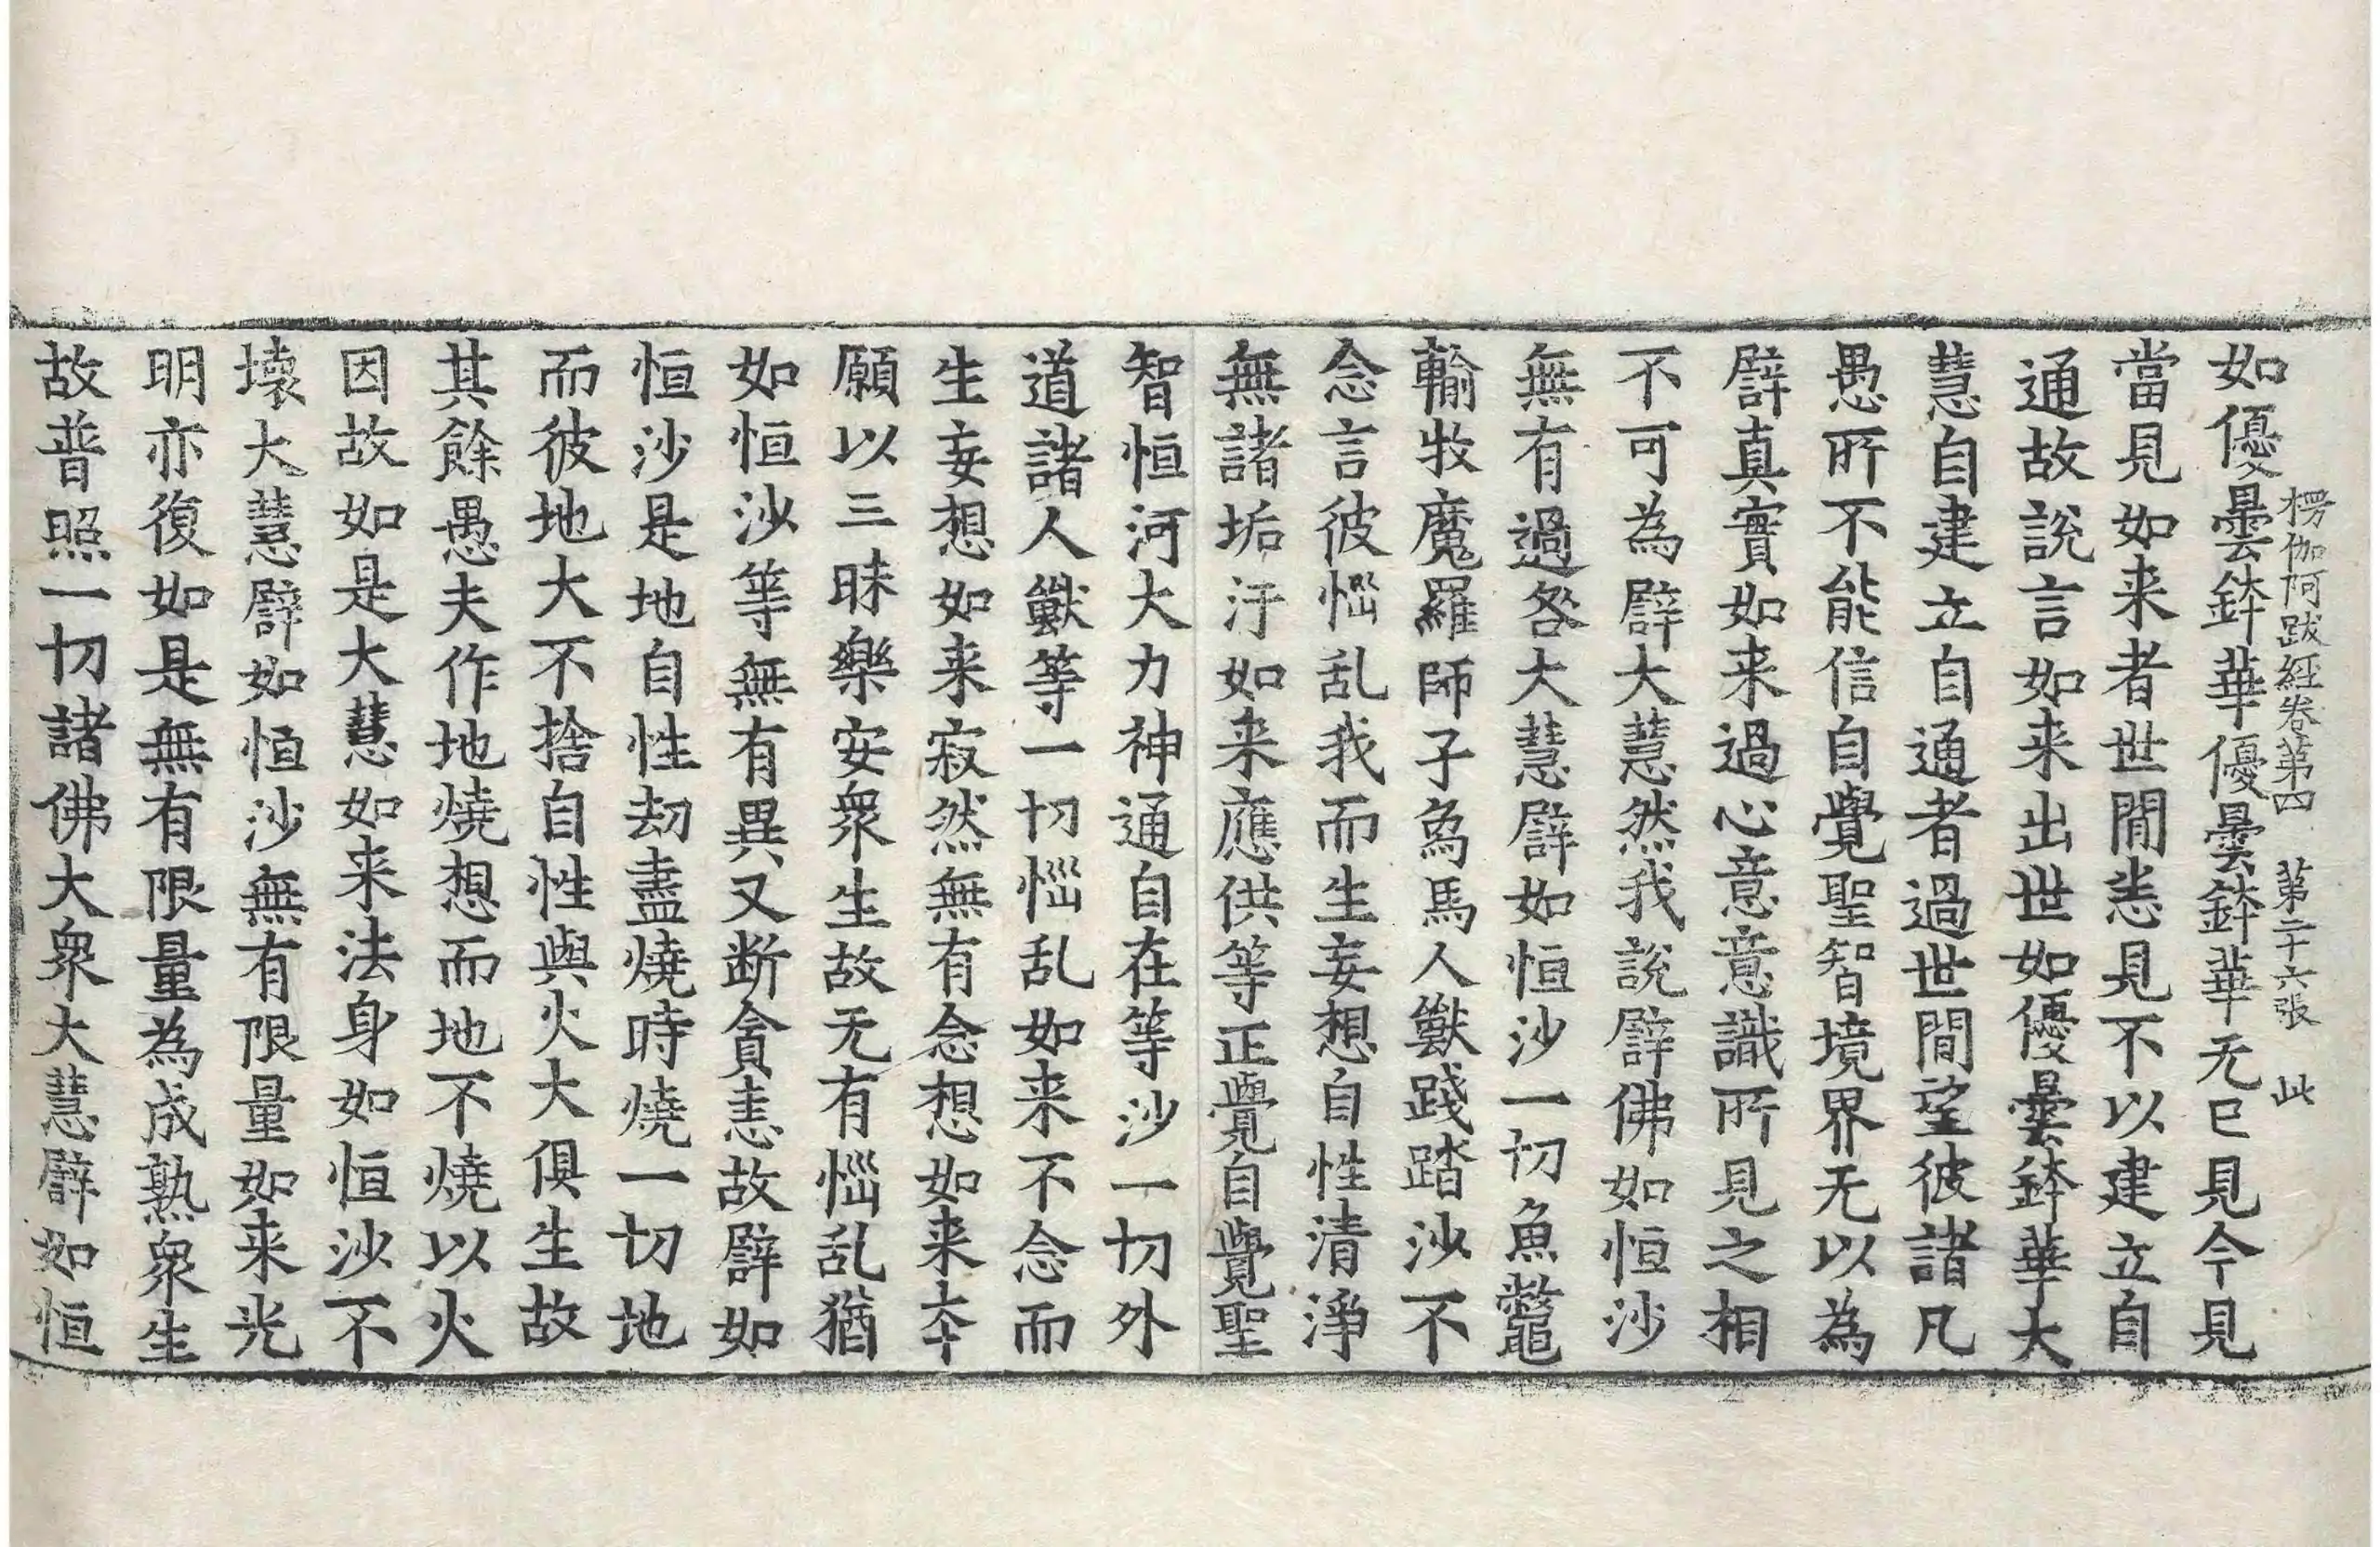 楞伽阿跋経卷第四 第二十六張 此
如優曇鉢華優曇鉢華无已見今見
當見如来者世間悉見不以建立自
通故說言如来出世如優曇鉢華大
慧自建立自通者過世間望彼諸凡
愚所不能信自覺聖智境界无以為
譬真實如来過心意意識所見之相
不可為譬大慧然我說譬佛如恒沙
無有過咎大慧譬如恒沙一切魚鼈
輸牧魔羅師子為馬人獸踐踏沙不
念言彼惱乱我而生妄想自性清淨
無諸垢汙如来應供等正覺自覺聖
智恒河大力神通自在等沙一切外
道諸人獸等一切惱乱如来不念而
生妄想如来寂然無有念想如来夲
願以三昧樂安衆生故无有惱乱猶
如恒沙等無有異又断貪恚故譬如
恒沙是地自性劫盡燒時燒一切地
而彼地大不捨自性與火大俱生故
其餘愚夫作地燒想而地不燒以火
因故如是大慧如来法身如恒沙不
壊大慧譬如恒沙無有限量如来光
明亦復如是無有限量為成熟衆生
故普照一切諸佛大衆大慧譬如恒